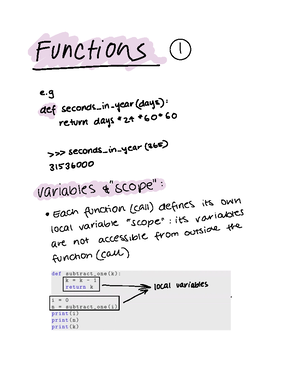 Functions ①
e.g
def seconds_in_year(days):
return days * 24 * 60 * 60
>>> seconds_in_year(365)
31536000
variables & "scope":
• Each function (call) defines its own
local variable "scope": its variables
are not accessible from outside the
function (call)
def subtract_one(k):
k = k - 1
return k
local variables
i = 0
n = subtract_one(i)
print(i)
print(n)
print(k)